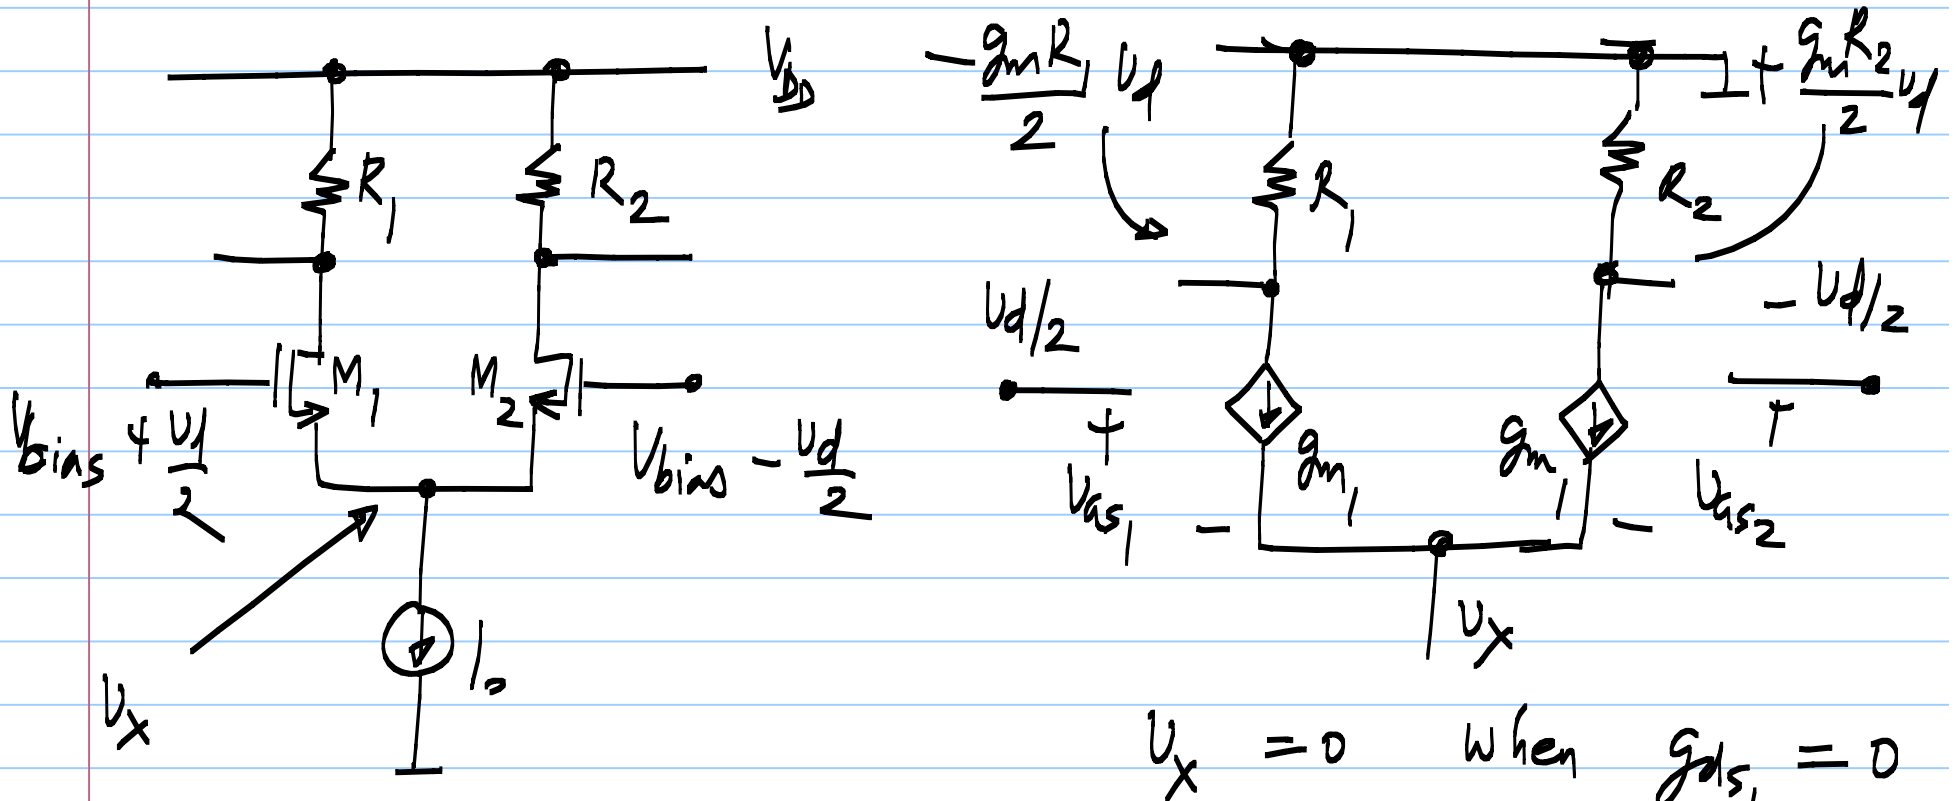 V_DD
R_1
R_2
M_1
M_2
V_bias + v_d/2
V_bias - v_d/2
v_x
I_o
- g_m R_1/2 v_d
+ g_m R_2/2 v_d
R_1
R_2
v_d/2
- v_d/2
+
+
g_m1
g_m1
v_GS1
-
-
v_GS2
v_x
v_x = 0 when g_ds1 = 0